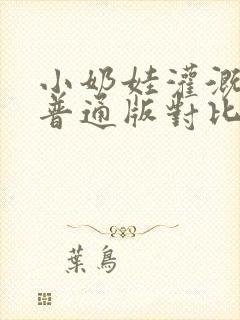 小奶娃灌溉
普通版對比
葉鳥